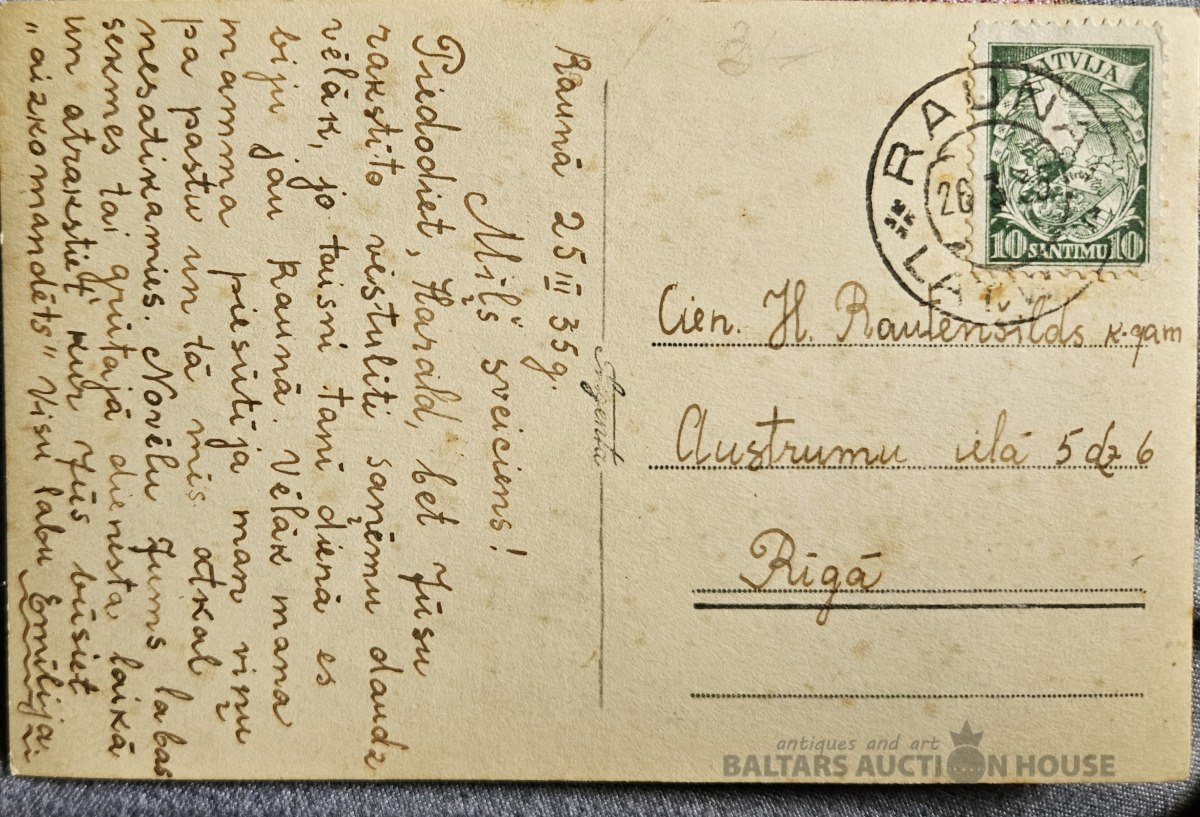 Raunā 25 III 35g.
Miļš sveiciens!
Piedodiet, Harald, bet Jūsu
rakstīto vēstulīti saņēmu daudz
vēlāk, jo taisni tanī dienā es
biju jau Raunā. Vēlāk mana
mamma piesūtīja man viņu
pa pastu un tā mēs atkal
nesatikāmies. Novēlu Jums labas
sekmes tai grūtajā dienista laikā
un atrakstiet kur Jūs būsiet
„aizkomandēts" Visu labu Emīlija.
LATVIJA
10 SANTIMU 10
RAUNA
LATV
26
Cien. H. Rautensilds k-gam
Austrumu ielā 5 dz 6
Rīgā
antiques and art
BALTARS AUCTION HOUSE